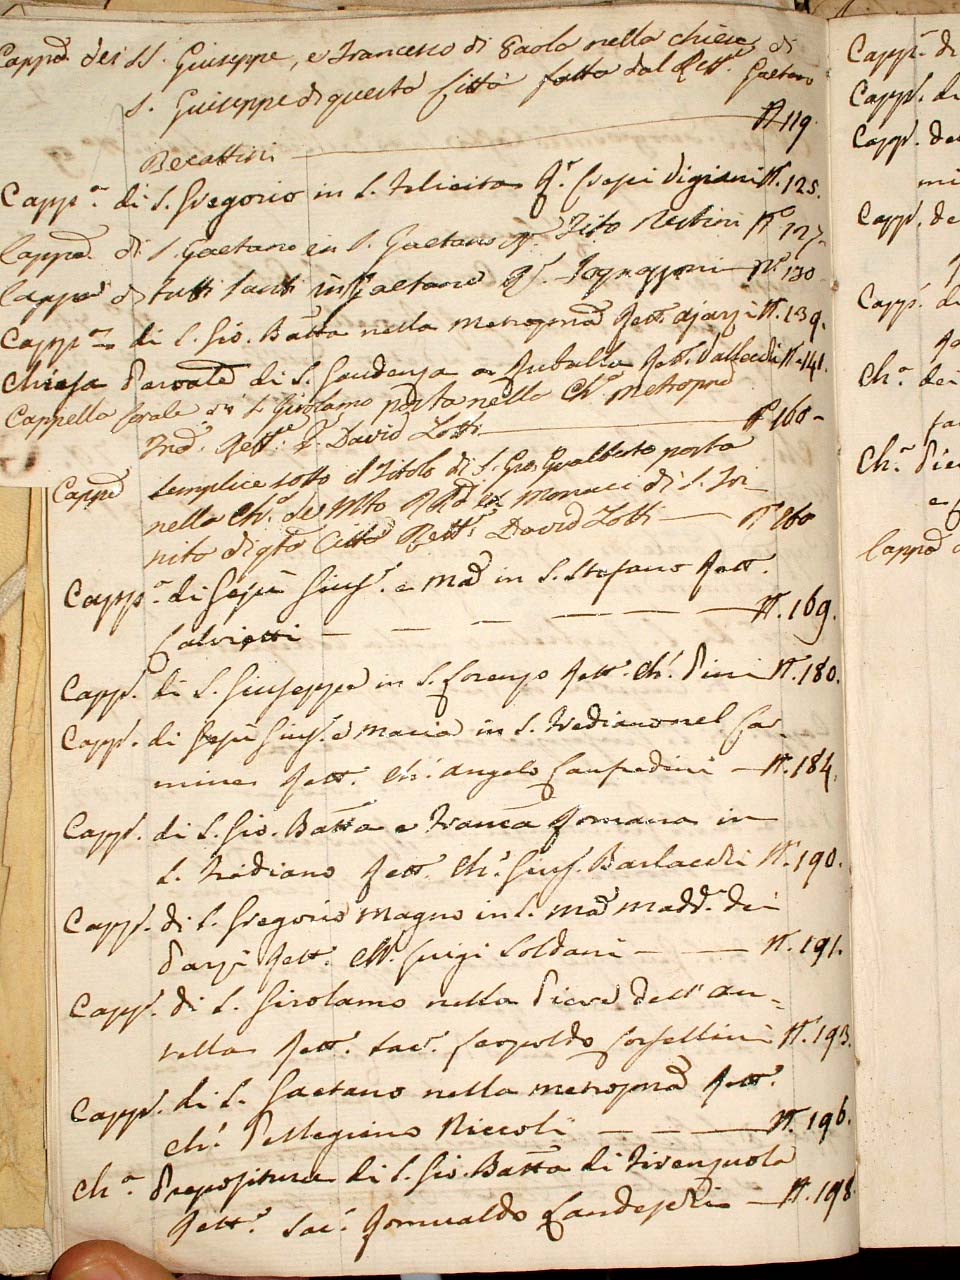 Capp.a dei SS. Giuseppe, e Francesco di Paola nella chiesa di
S. Giuseppe di questa Città fatta dal Rett.e Gaetano
Becattini — N. 119.
Capp.a di S. Gregorio in S. Felicita R.e Crespi Vigiani N. 125.
Capp.a di S. Gaetano in S. Gaetano R.e Tito Rubini N. 127.
Capp.a di tutti Santi in S. Gaetano R.e N. 130
Capp.a di S. Gio. Batta nella Metrop.na Rett. N. 139.
Chiesa Parro.le di S. Gaudenzio a Rett. Vallecchi N. 141.
Cappella Corale di S. Girolamo posta nella Ch.a Metrop.na
Rett.e P. David Zotti — N. 160 -
Capp.a semplice sotto il Titolo di S. Gio. Gualberto posta
nella Ch.a de Monaci di S. Tri-
nita di q.ta Città Rett.e David Zotti — N. 160
Capp.a di Gesù Gius.e e M.a in S. Stefano Rett.
Calvietti — — — — — N. 169.
Capp. di S. Giuseppe in S. Lorenzo Rett. Ch. Pini N. 180.
Capp. di Gesù Gius.e e Maria in S. Frediano nel Car-
mine Rett. Ch. Angelo Canfredini — N. 184.
Capp. di S. Gio. Batta e Franca Romana in
S. Frediano Rett. Ch. Gius. Barlacchi N. 190.
Capp. di S. Gregorio Magno in S. M.a Madd. dei
Pazzi Rett. Ch. Luigi Soldani — — N. 191.
Capp. di S. Girolamo nella Pieve dell' An-
tella Rett. Sac. Leopoldo Corsellini N. 193.
Capp. di S. Gaetano nella Metrop.na Rett.
Ch. Pellegrino Niccoli — — — N. 196.
Ch.a Prepositura di S. Gio. Batta di Firenzuola
Rett.e Sac. Romualdo — N. 198
Capp. di
Capp. di
Capp. de
mi
Capp. de
Capp. di
Ch.a dei
Ch.a Pie
e
Capp.a d